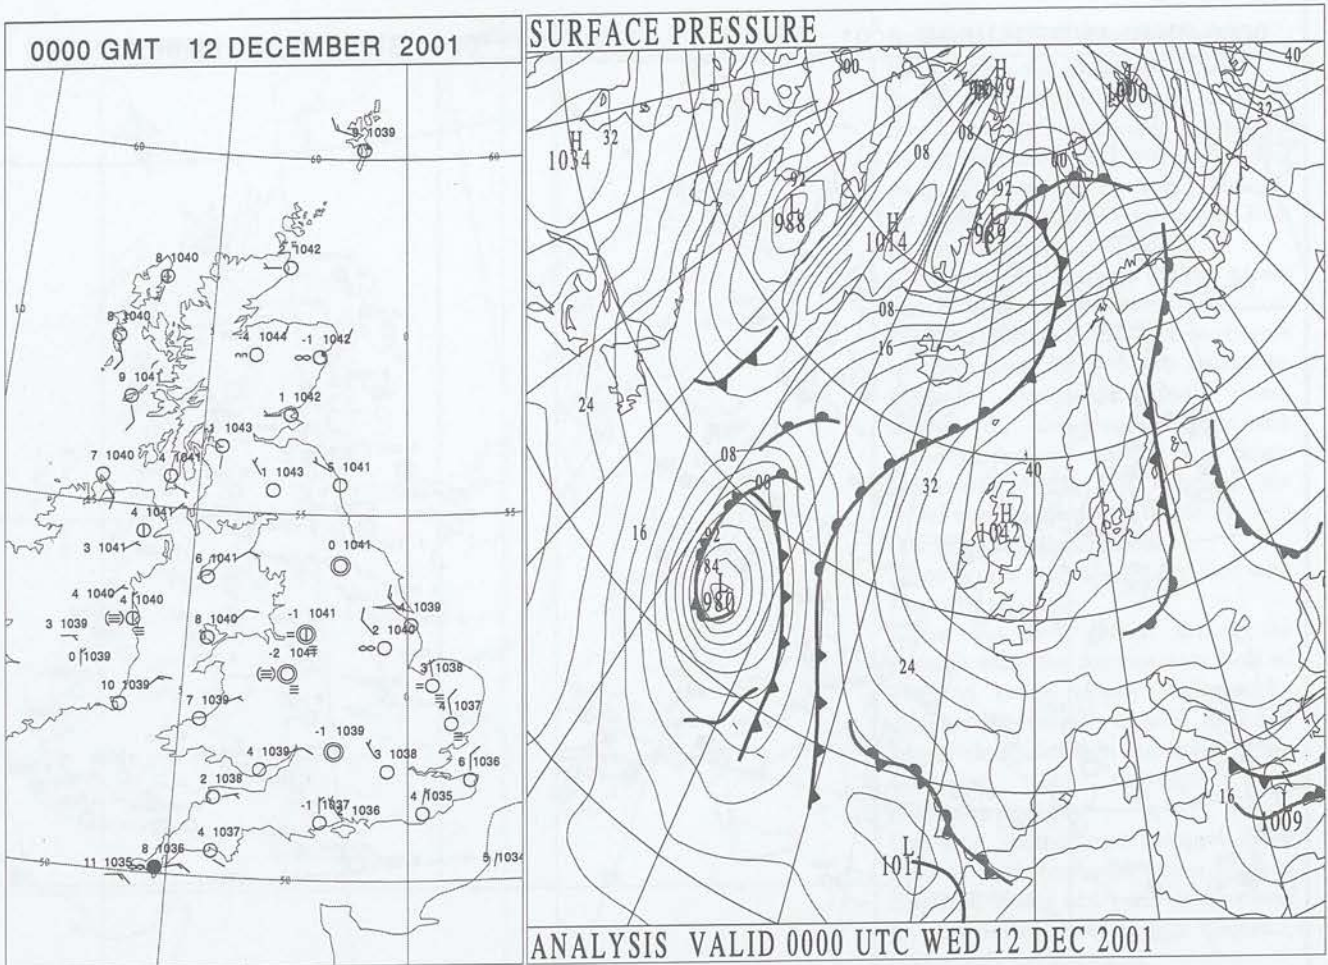 0000 GMT 12 DECEMBER 2001
9 1039
60
60
60
2 1042
8 1040
10
8 1040
-4 1044
-1 1042
0
5
9 1041
1 1042
-1 1043
7 1040
4 1041
-1 1043
5 1041
55
55
55
4 1041
3 1041
6 1041
0 1041
4 1040
4 1040
-1 1041
4 1039
3 1039
8 1040
2 1040
0 1039
-2 1041
3 1038
10 1039
5
7 1039
0
4 1037
-1 1039
4 1039
3 1038
6 1036
2 1038
4 1035
-1 1037
2 1036
4 1037
8 1036
50
11 1035
50
1034
SURFACE PRESSURE
00
H
L
40
1000
32
H
1034
32
08
08
00
92
L
988
H
1014
92
L
989
08
16
24
08
40
32
00
H
1042
16
92
84
L
980
24
16
L
1009
L
1011
ANALYSIS VALID 0000 UTC WED 12 DEC 2001